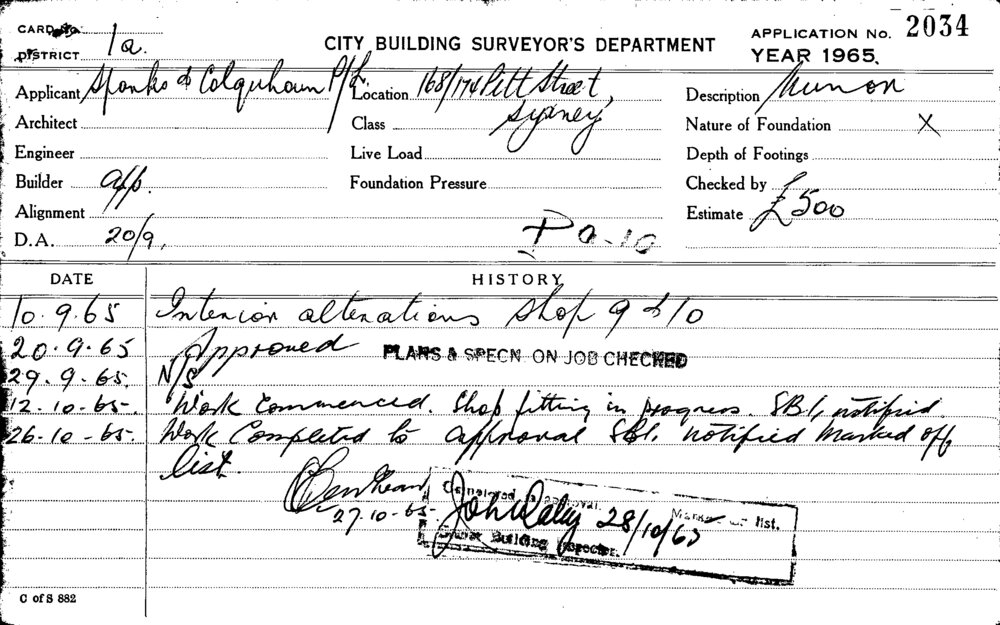 CARD No.
DISTRICT 1a.
CITY BUILDING SURVEYOR'S DEPARTMENT
APPLICATION No. 2034
YEAR 1965.
Applicant Spanks & Colquhoun P/L.
Location 168/174 Pitt Street, Sydney
Description
Architect
Class
Nature of Foundation X
Engineer
Live Load
Depth of Footings
Builder app.
Foundation Pressure
Checked by
Alignment
Estimate £500
D.A. 20/9.
DATE HISTORY
10.9.65 Interior alterations shop 9 & 10
20.9.65 Approved PLANS & SPECN ON JOB CHECKED
29.9.65. N/S
12.10.65. Work Commenced. Shop fitting in progress. SBI, notified.
26.10.65. Work Completed to approval SBI. notified marked off
list.
27.10.65.
John Daley 28/10/65
list.
Building Inspector.
C of S 882